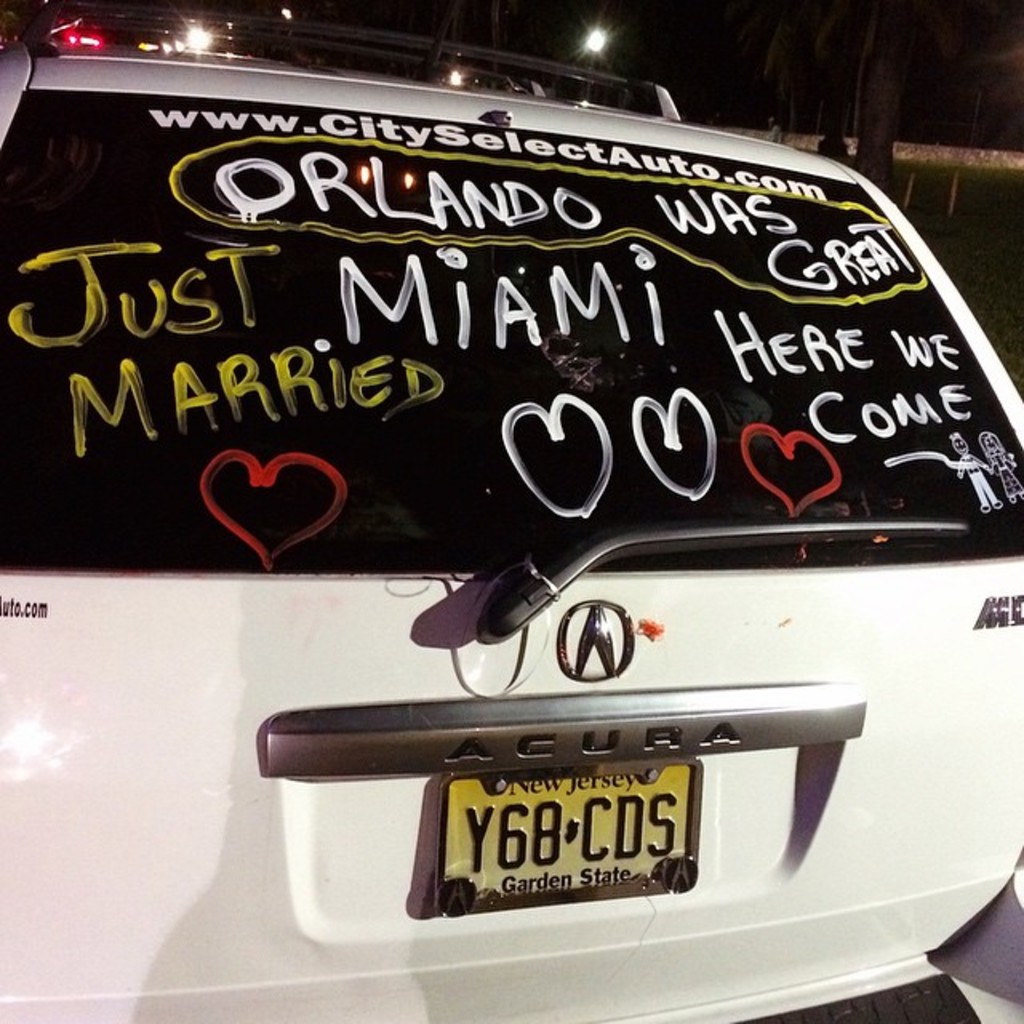 www.CitySelectAuto.com
ORLANDO WAS
GREAT
JUST
MARRIED
MiAMi
HERE WE
COME
uto.com
ACURA
New Jersey
Y68 CDS
Garden State